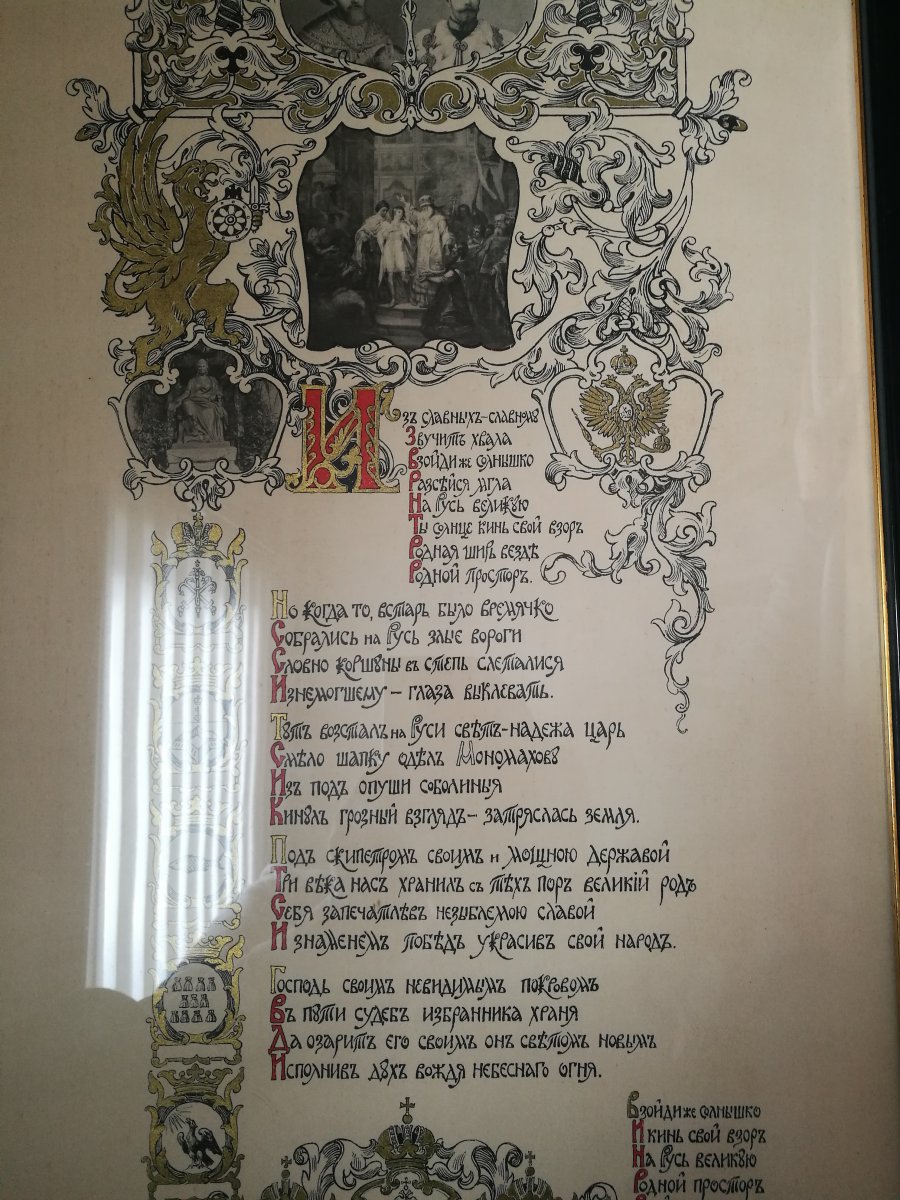 Изъ славныхъ-славному
Звучитъ хвала
Взойди же солнышко
Разсѣйся мгла
На Русь великую
Ты солнце кинь свой взоръ
Родная ширь вездѣ
Родной просторъ.
Но когда то, встарь было времячко
Собрались на Русь злые вороги
Словно коршуны въ степь слеталися
Изнемогшему – глаза выклевать.
Тутъ возсталъ на Руси свѣтъ-надежа царь
Смѣло шапку одѣлъ Мономахову
Изъ подъ опуши соболиныя
Кинулъ грозный взглядъ – затряслась земля.
Подъ скипетромъ своимъ и мощною державой
Три вѣка насъ хранилъ съ тѣхъ поръ великій родъ
Себя запечатлѣвъ незыблемою славой
И знаменемъ побѣдъ украсивъ свой народъ.
Господь своимъ невидимымъ покровомъ
Въ пути судебъ избранника храня
Да озаритъ его своимъ онъ свѣтомъ новымъ
Исполнивъ духъ вождя небеснаго огня.
Взойди же солнышко
И кинь свой взоръ
На Русь великую
Родной просторъ